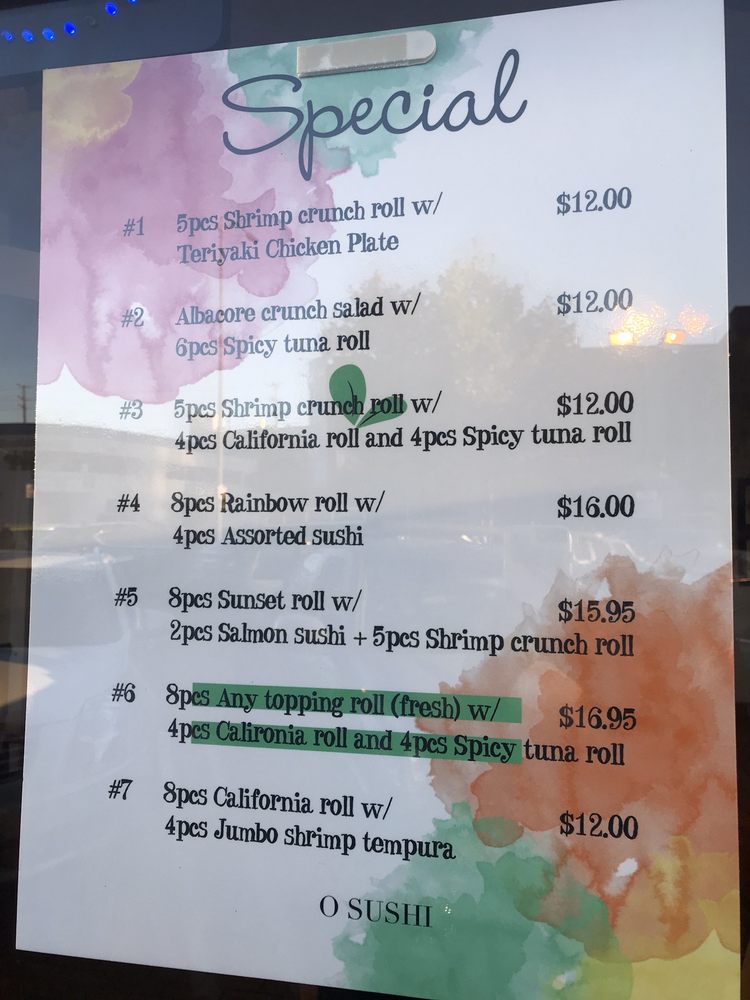 Special
#1 5pcs Shrimp crunch roll w/ $12.00
Teriyaki Chicken Plate
#2 Albacore crunch salad w/ $12.00
6pcs Spicy tuna roll
#3 5pcs Shrimp crunch roll w/ $12.00
4pcs California roll and 4pcs Spicy tuna roll
#4 8pcs Rainbow roll w/ $16.00
4pcs Assorted sushi
#5 8pcs Sunset roll w/ $15.95
2pcs Salmon sushi + 5pcs Shrimp crunch roll
#6 8pcs Any topping roll (fresh) w/ $16.95
4pcs Calironia roll and 4pcs Spicy tuna roll
#7 8pcs California roll w/ $12.00
4pcs Jumbo shrimp tempura
O SUSHI